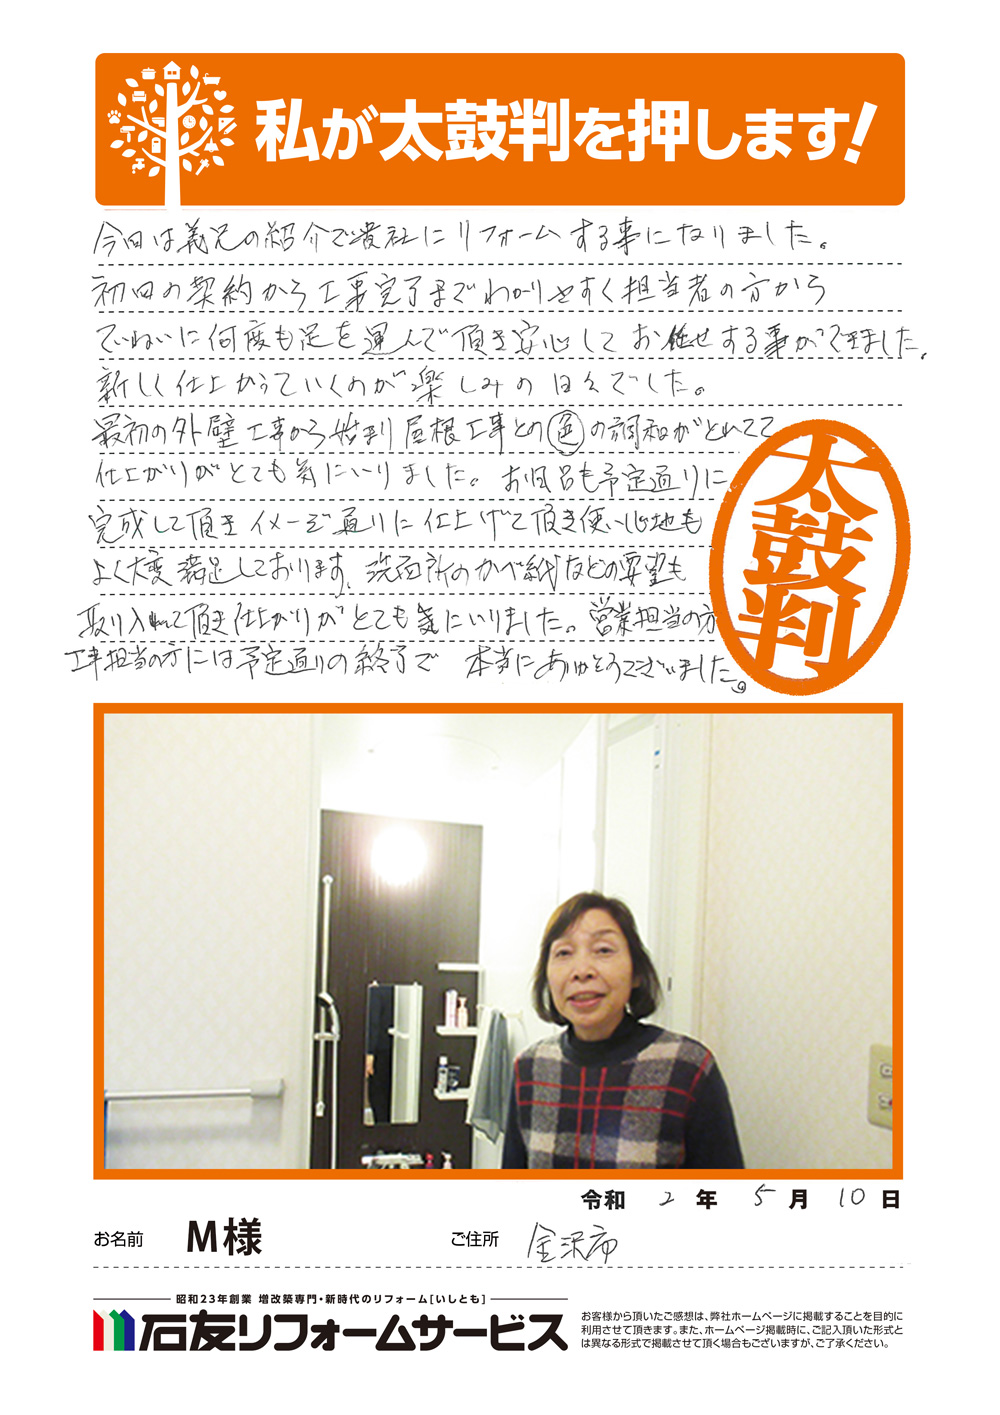 私が太鼓判を押します!
今回は義兄の紹介で貴社にリフォームする事になりました。
初回の契約から工事完了までわかりやすく担当者の方から
ていねいに何度も足を運んで頂き安心してお任せする事ができました。
新しく仕上がっていくのが楽しみの日々でした。
最初の外壁工事から始まり屋根工事との色の調和がとれてて
仕上がりがとても気にいりました。お風呂も予定通りに
完成して頂きイメージ通りに仕上げて頂き使い心地も
よく大変満足しております。洗面所のかべ紙などの要望も
取り入れて頂き仕上がりがとても気にいりました。営業担当の方
工事担当の方には予定通りの終了で 本当にありがとうございました。
太鼓判
令和 2 年 5 月 10 日
お名前 M様 ご住所 金沢市
昭和23年創業 増改築専門・新時代のリフォーム[いしとも]
石友リフォームサービス
お客様から頂いたご感想は、弊社ホームページに掲載することを目的に
利用させて頂きます。また、ホームページ掲載時に、ご記入頂いた形式と
は異なる形式で掲載させて頂く場合もございますが、ご了承ください。